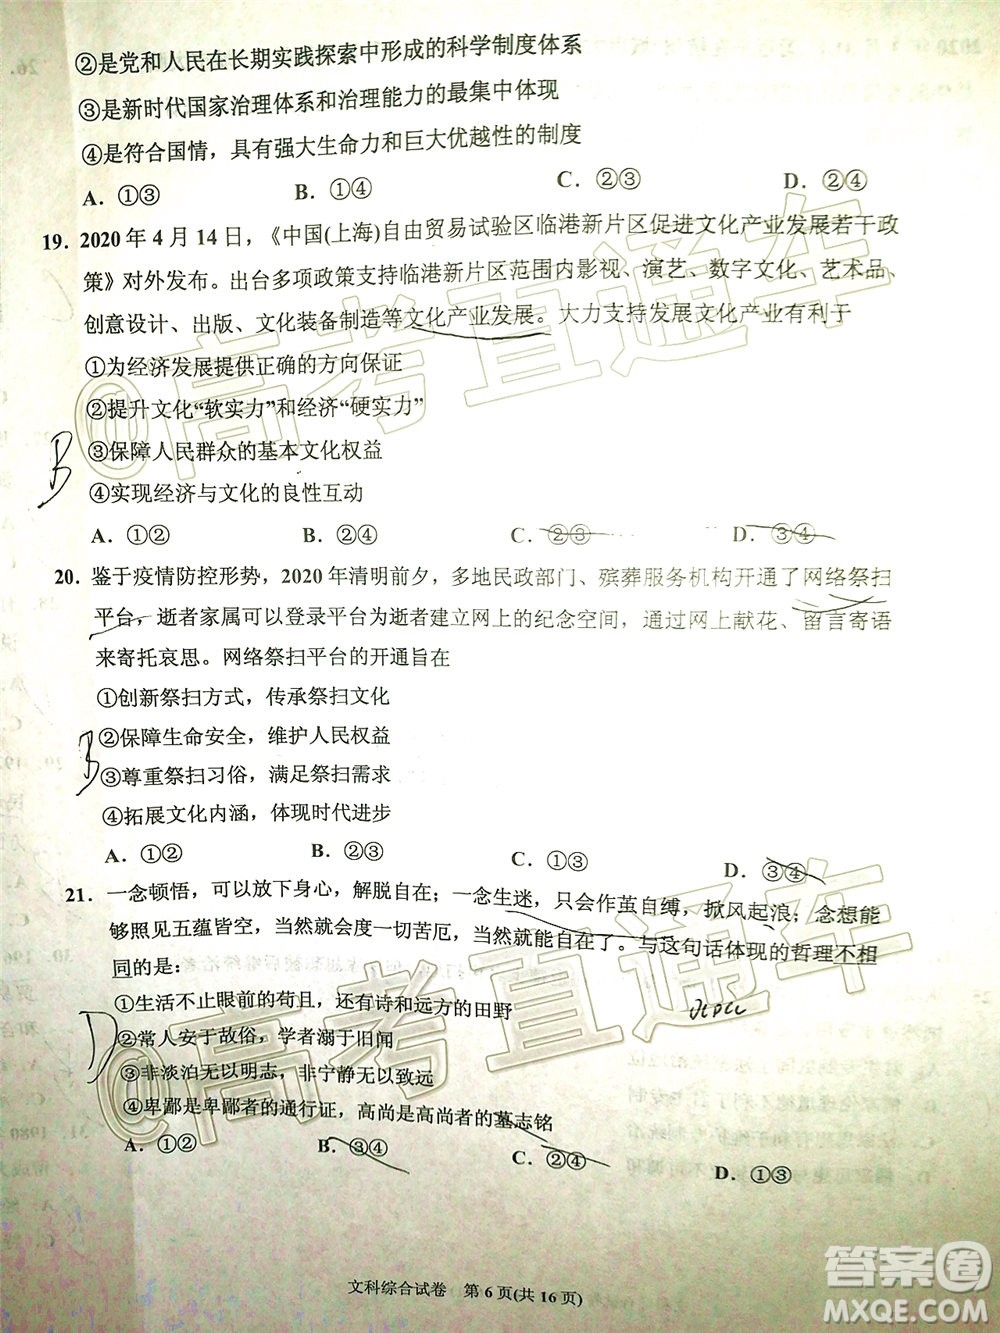 ②是党和人民在长期实践探索中形成的科学制度体系
③是新时代国家治理体系和治理能力的最集中体现
④是符合国情，具有强大生命力和巨大优越性的制度
A．①③ B．①④ C．②③ D．②④
19．2020年4月14日，《中国(上海)自由贸易试验区临港新片区促进文化产业发展若干政
策》对外发布。出台多项政策支持临港新片区范围内影视、演艺、数字文化、艺术品、
创意设计、出版、文化装备制造等文化产业发展。大力支持发展文化产业有利于
①为经济发展提供正确的方向保证
②提升文化“软实力”和经济“硬实力”
③保障人民群众的基本文化权益
B
④实现经济与文化的良性互动
A．①② B．①④ C．②③ D．③④
20．鉴于疫情防控形势，2020年清明前夕，多地民政部门、殡葬服务机构开通了网络祭扫
平台，逝者家属可以登录平台为逝者建立网上的纪念空间，通过网上献花、留言寄语
来寄托哀思。网络祭扫平台的开通旨在
①创新祭扫方式，传承祭扫文化
②保障生命安全，维护人民权益
B
③尊重祭扫习俗，满足祭扫需求
④拓展文化内涵，体现时代进步
A．①② B．②③ C．①③ D．③④
21．一念顿悟，可以放下身心，解脱自在；一念生迷，只会作茧自缚，掀风起浪；念想能
够照见五蕴皆空，当然就会度一切苦厄，当然就能自在了。与这句话体现的哲理不相
同的是：
①生活不止眼前的苟且，还有诗和远方的田野
②常人安于故俗，学者溺于旧闻
D
③非淡泊无以明志，非宁静无以致远
④卑鄙是卑鄙者的通行证，高尚是高尚者的墓志铭
A．①② B．③④ C．②④ D．①③
文科综合试卷 第6页(共16页)
@高考直通车
@高考直通车
答案圈
MXQE.COM